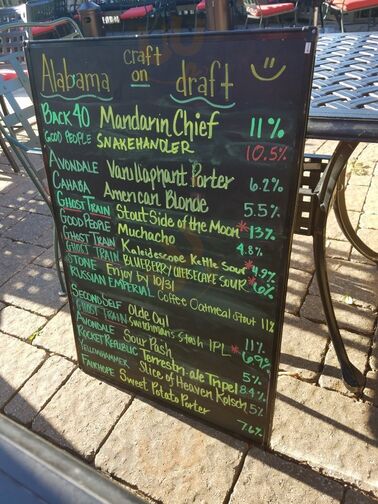 Alabama craft on draft
BACK 40 Mandarin Chief 11%
GOOD PEOPLE SNAKEHANDLER 10.5%
AVONDALE Vanillaphant Porter 6.2%
CAHABA American Blonde 5.5%
GHOST TRAIN Stout Side of the Moon *13%
GOOD PEOPLE Muchacho 4.8%
GHOST TRAIN Kaleidoscope Kettle Sour *4.9%
GHOST TRAIN BLUEBERRY CHEESECAKE SOUR *6%
STONE Enjoy by 10/31
RUSSIAN EMPERIAL Coffee Oatmeal Stout 11%
SECOND SELF Olde Owl 11%
GHOST TRAIN Switchman's Stash IPL *6.9%
AVONDALE Sour Pash 5%
ROCKET REPUBLIC Terrestri-ale Tripel 8.4%
YELLOWHAMMER Slice of Heaven Kolsch 5%
FAIRHOPE Sweet Potato Porter 7.6%